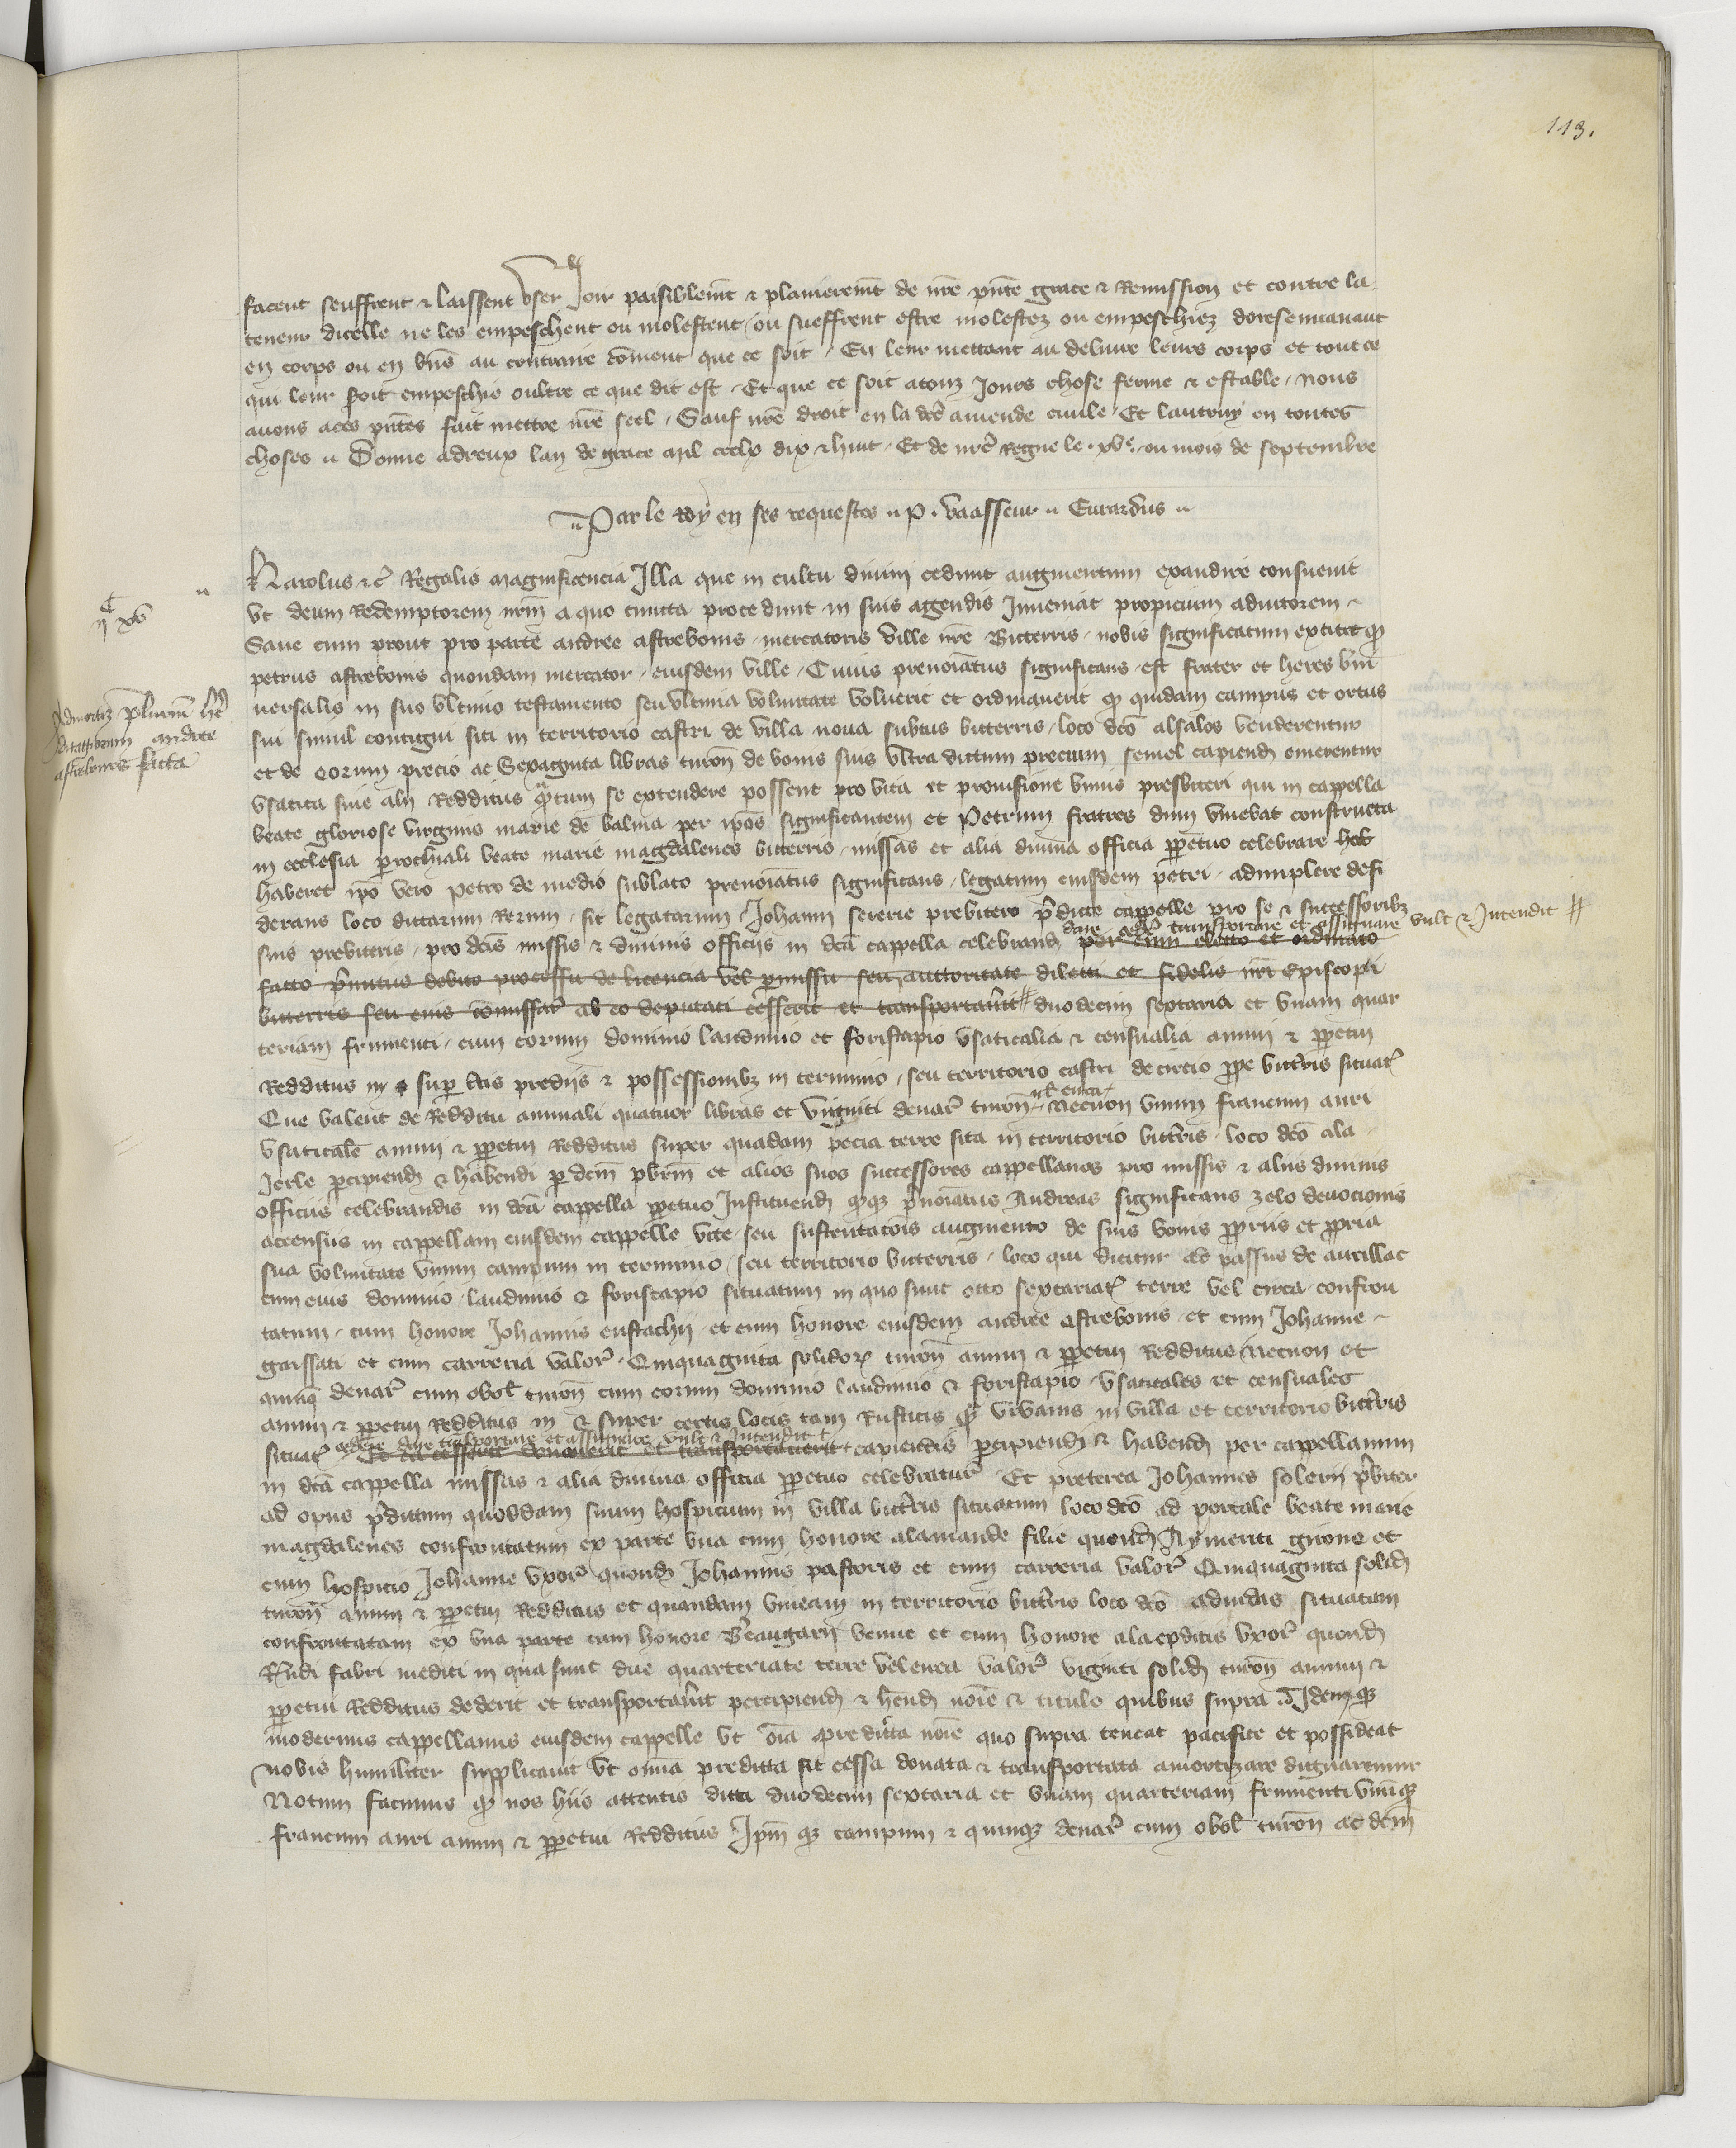 113.
facent seuffrent & laissent user Joir paisiblemt & plainieremt de nre pnte grace & Remission et contre la
teneur dicelle ne les empeschent ou molestent / ou sueffrent estre molestez ou empeschiez doresenauant
en corps ou en bns au contraire coment que ce soit / En leur mettant au deliure leurs corps et tout ce
qui leur soit empeschie oultre ce que dit est / Et que ce soit atouz Jours chose ferme & estable / nous
auons aces pntes fait mettre nre seel / Sauf nre droit en la dce amende ciuile / Et lautruy en toutes
choses Donne adreux lan de grace mil ccclx dix & huit / Et de nre Regne le xve ou mois de septembre
Par le Roy en ses requestes P. vaasseur Eurardus
Karolus &c Regalis magnificencia Illa que in cultu diuini cedunt augmentum exaudire consueuit
Vt deum Redemptorem nrm a quo cuncta procedunt in suis agendis Inueniat propicium adiutorem
Sane cum prout pro parte andree astrebonis / mercatoris ville nre Bitterris / nobis significatum extitit qd
petrus astrebonis quondam mercator / eiusdem ville / Cuius prenoiatus significans / est frater et heres vni
uersalis in suo vltimo testamento seu vltima voluntate voluerit et ordinauerit qd quidam campus et ortus
sui simul contigui siti in territorio castri de villa noua subtus bitterris / loco dco alsalos venderentur
et de eorum precio ac Sexaginta libras turon de bonis suis vltra dictum precium semel capiend emerentur
vsatica siue alij Redditus qtum se extendere possent pro vita et prouisione vnius presbiteri qui in cappella
beate gloriose virginis marie de balma per ipos significantem et Petrum fratres dum viuebat constructa
in ecclesia parochiali beate marie magdalenes bitterris / missas et alia diuina officia ppetuo celebrare heb
haberet ipo vero petro de medio sublato prenoiatus significans / legatum eiusdem petri / adimplere desi
derans loco dictarum Rerum / sit legatarum Johanni sererie prebitero pdicte cappelle pro se & successoribz
suis prebiteris / pro dcis missis & diuinis officijs in dca cappella celebrand dare cedere transportare et assignare vult & Intendit per eum electo et ordinato
facto pmitus debito processu de licencia vel pmissu seu auctoritate dilecti et fidelis nri Episcopi
bitterris seu eius comissar ab eo deputati cesserit et transportauit duodecim sextaria et vnam quar
teriam frumenti / cum eorum dominio laudimio et foriscapio vsaticalia & censualia annui & ppetui
Redditus in & sup ctis predijs & possessionibz in terminio / seu territorio castri de circio ppe bitterris situat
Que valent de Redditu annuali quatuor libras et viginti denar turon vel circa Necnon vnum francum auri
vsaticale annui & ppetui Redditus super quadam pecia terre sita in territorio bitterris / loco dco ala
Jerle pcipiend & habendi p dcm pbrm et alios suos successores cappellanos pro missis & alijs diuinis
officijs celebrandis in dca cappella ppetuo Instituend qdqz pnoiatus Andreas significans zelo deuocionis
accensus in cappellam eiusdem cappelle vite / seu sustentacois augmento de suis bonis pprijs et ppria
sua voluntate vnum campum in terminio / seu territorio bitterris / loco qui dicitur ad passus de aurillac
cum eius dominio / laudimio & foriscapio situatum in quo sunt octo sextariat terre vel circa / confron
tatum / cum honore Johannis eustachij / et cum honore eiusdem andree astrebonis / et cum Johanne
gaissati et cum carreria valor Quinquaginta solidor turon annui & ppetui Redditus Necnon et
quinqz denar cum obol turon cum eorum dominio laudimio & foriscapio / vsaticales et censuales
annui & ppetui Redditus in & super certis locis tam Rusticis qm vrbanis in villa et territorio bitterris
situat cedere dare transportare et assignare vult & Intendit Et da cesserit donauerit et transportauerit capiendis pcipiend & habend per cappellanum
in dca cappella missas & alia diuina officia ppetuo celebratur Et preterea Johannes solerij pbiter
ad opus pdictum quoddam suum hospicium in villa bitterris situatum loco dco ad portale beate marie
magdalenes confrontatum ex parte vna cum honore alamande filie quond Aymerici guione et
cum hospicio Johanne vxor quond Johannis pastoris et cum carreria valor Quinquaginta solid
turon annui & ppetui Redditus et quandam vineam in territorio bitterris loco dco aduidas situatam
confrontatam ex vna parte cum honore Berengarij benue et cum honore alaepditis vxor quond
Rndi fabri medici in qua sunt due quarteriate terre vel circa valor viginti solid turon annui &
ppetui Redditus dederit et transportauit percipiend & hend noie & titulo quibus supra Idemqz
modernus cappellanus eiusdem cappelle vt oia predicta noie quo supra teneat pacifice et possideat
nobis humiliter supplicauit vt omia predicta sit cessa donata & transportata amortizare dignaremur
Notum facimus qd nos hiis attentis dicta duodecim sextaria et vnam quarteriam frumenti vnumqz
francum auri annui & ppetui Redditus Ipm qz campum & quinqz denar cum obol turon ac dcm
ij xv
Admortiz plurium here
ditatum andree
astrebonis facta